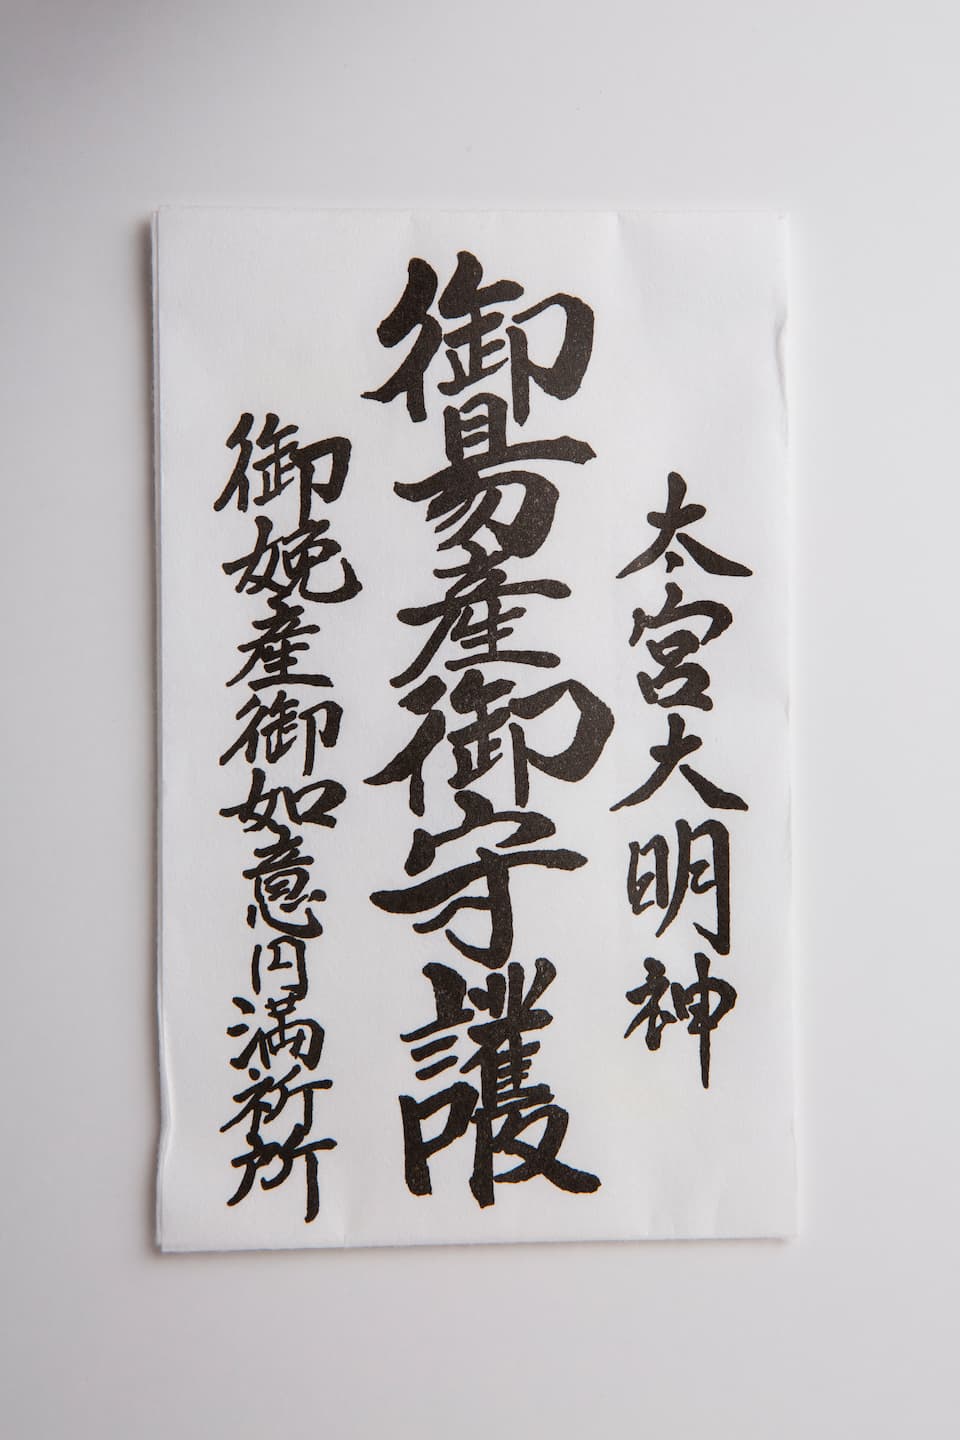 太宮大明神
御易産御守護
御娩産御如意円満祈所